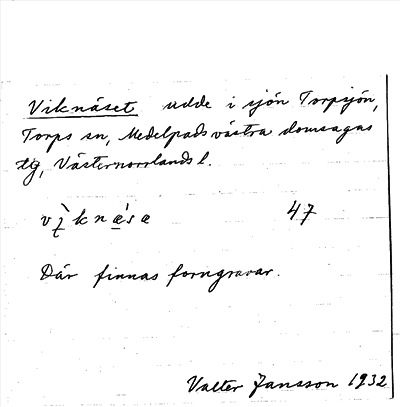 Viknäset udde i sjön Torpsjön,
Torps sn, Medelpads västra domsagas
tg, Västernorrlands l.
vìknása 47
Där finnas forngravar.
Valter Jansson 1932